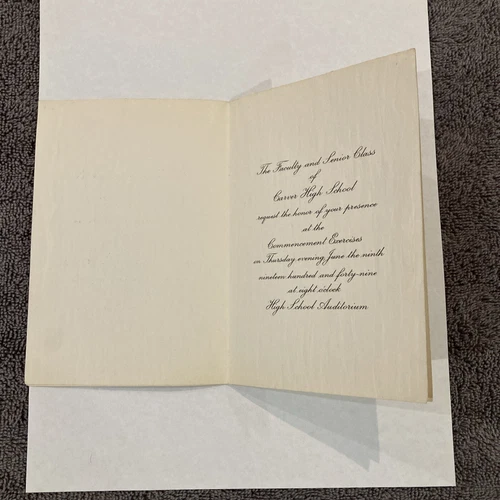 The Faculty and Senior Class
of
Carver High School
request the honor of your presence
at the
Commencement Exercises
on Thursday evening, June the ninth
nineteen hundred and forty-nine
at eight o'clock
High School Auditorium